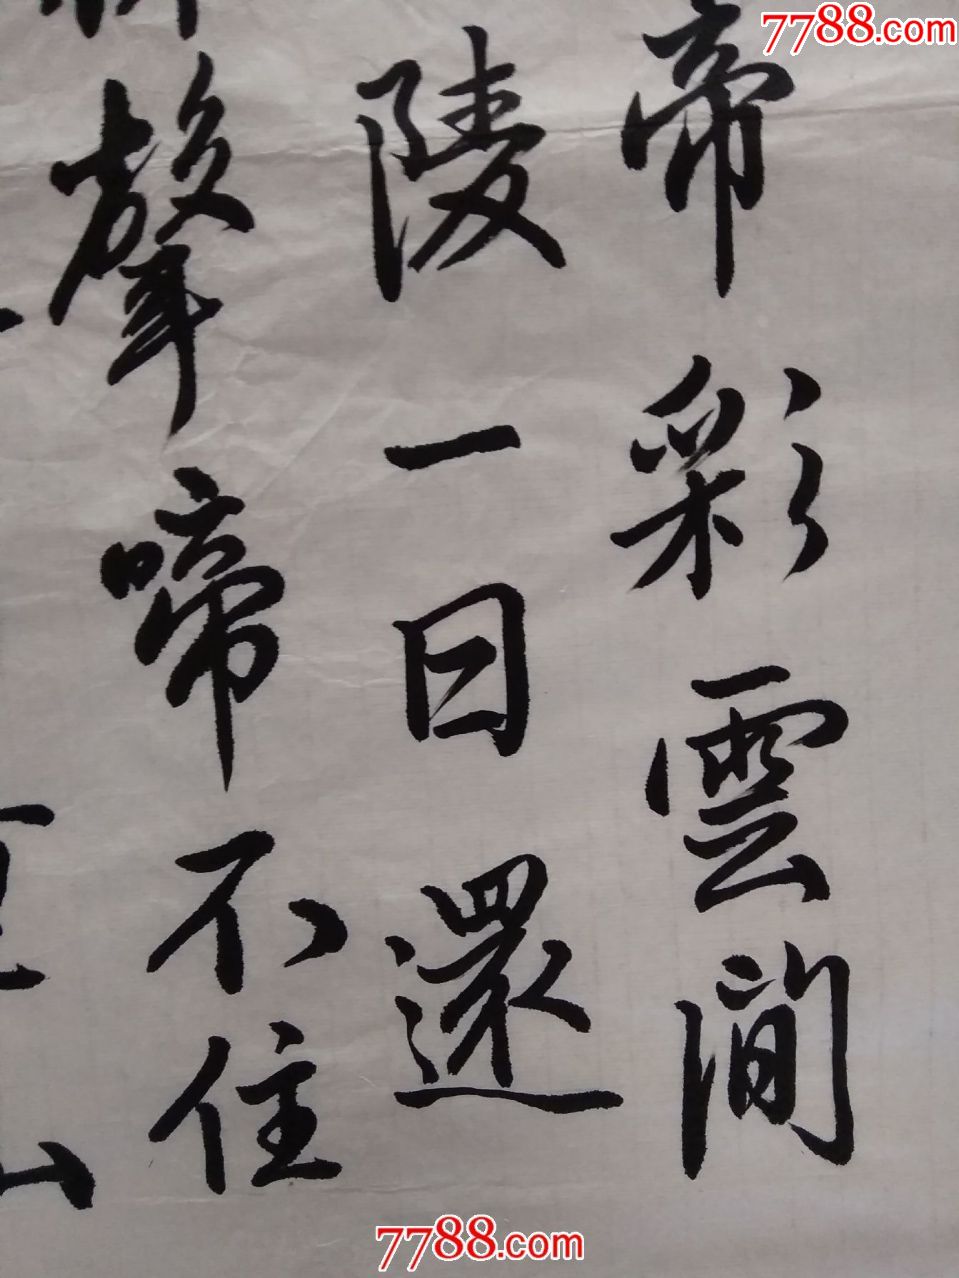 7788.com
帝彩雲間
陵一日還
聲啼不住
7788.com